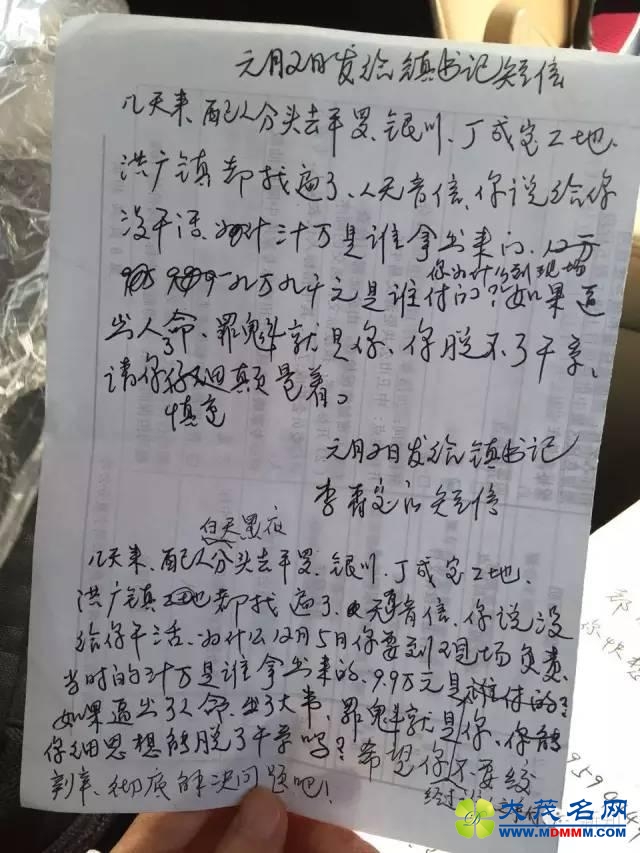 元月2日发给镇书记短信
几天来、配人分头去平罗、银川、丁成宝工地、
洪广镇却找遍了、人无音信、你说给你
没干活、为什 三十万是谁拿出来的、12万
您为什么到现场
九万九千元是谁付的？如果逼
出人命、罪魁就是你、你脱不了干系。
了
请你仔细 颠量着。
慎重
元月2日发给镇书记
李 宝的短信
白天黑夜
几天来、配人分头去平罗、银川、丁成宝工地、
洪广镇 地都找遍了、无音信、你说没
给你干活、为什么12月5日你要到现场负责、
当时的三十万是谁拿出来的、9.9万元是谁付的？
如果逼出了人命、出了大事、罪魁就是你、你能
你细思想能脱了干系吗？希望你不要绞
到 、彻底解决问题吧！
经过
你快
959
大茂名网
WWW.MDMMM.COM